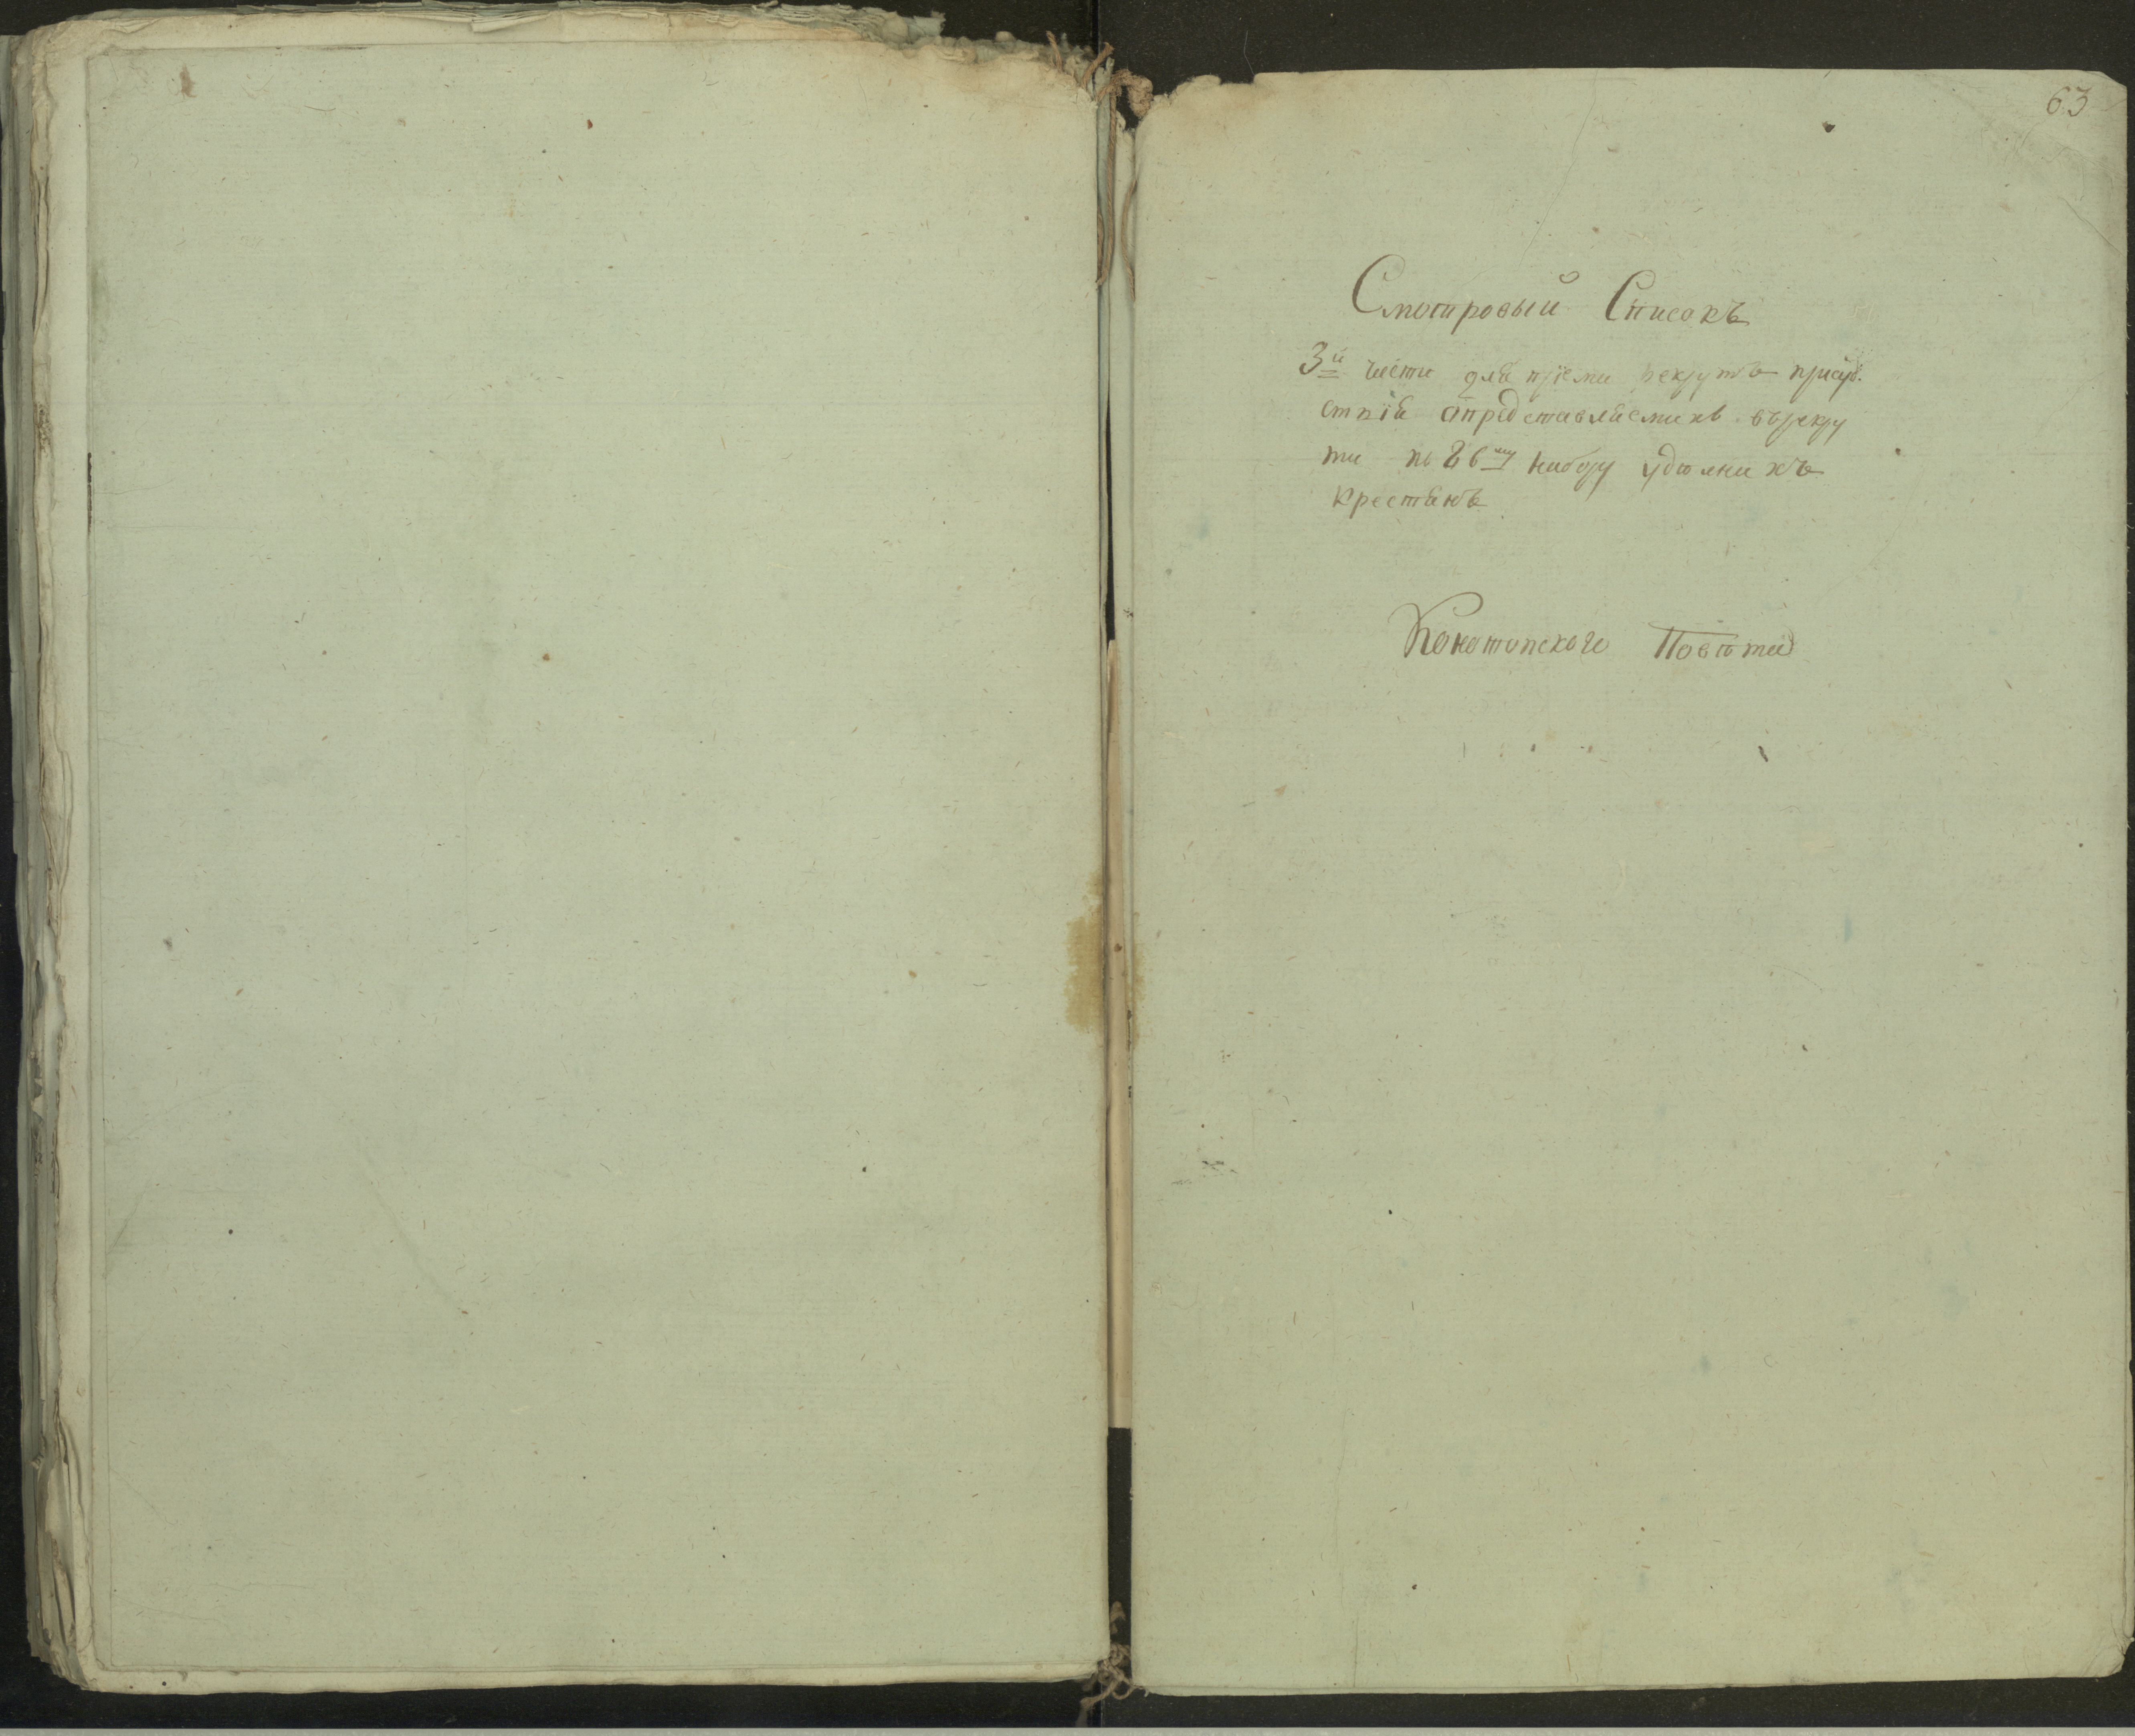 63
Смотровый Списокъ
3й части для пріема рекрутъ присуд.
ствія опредставляемихъ въ рекру
ти по 86му набору удѣлнихъ
крестянъ
Конотопского Повѣта